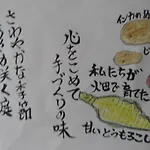 インカのめ
じ
私たちが
畑で育てた
甘いとうもろこし
心をこめて
手づくりの味
さわやかな季節
咲く庭